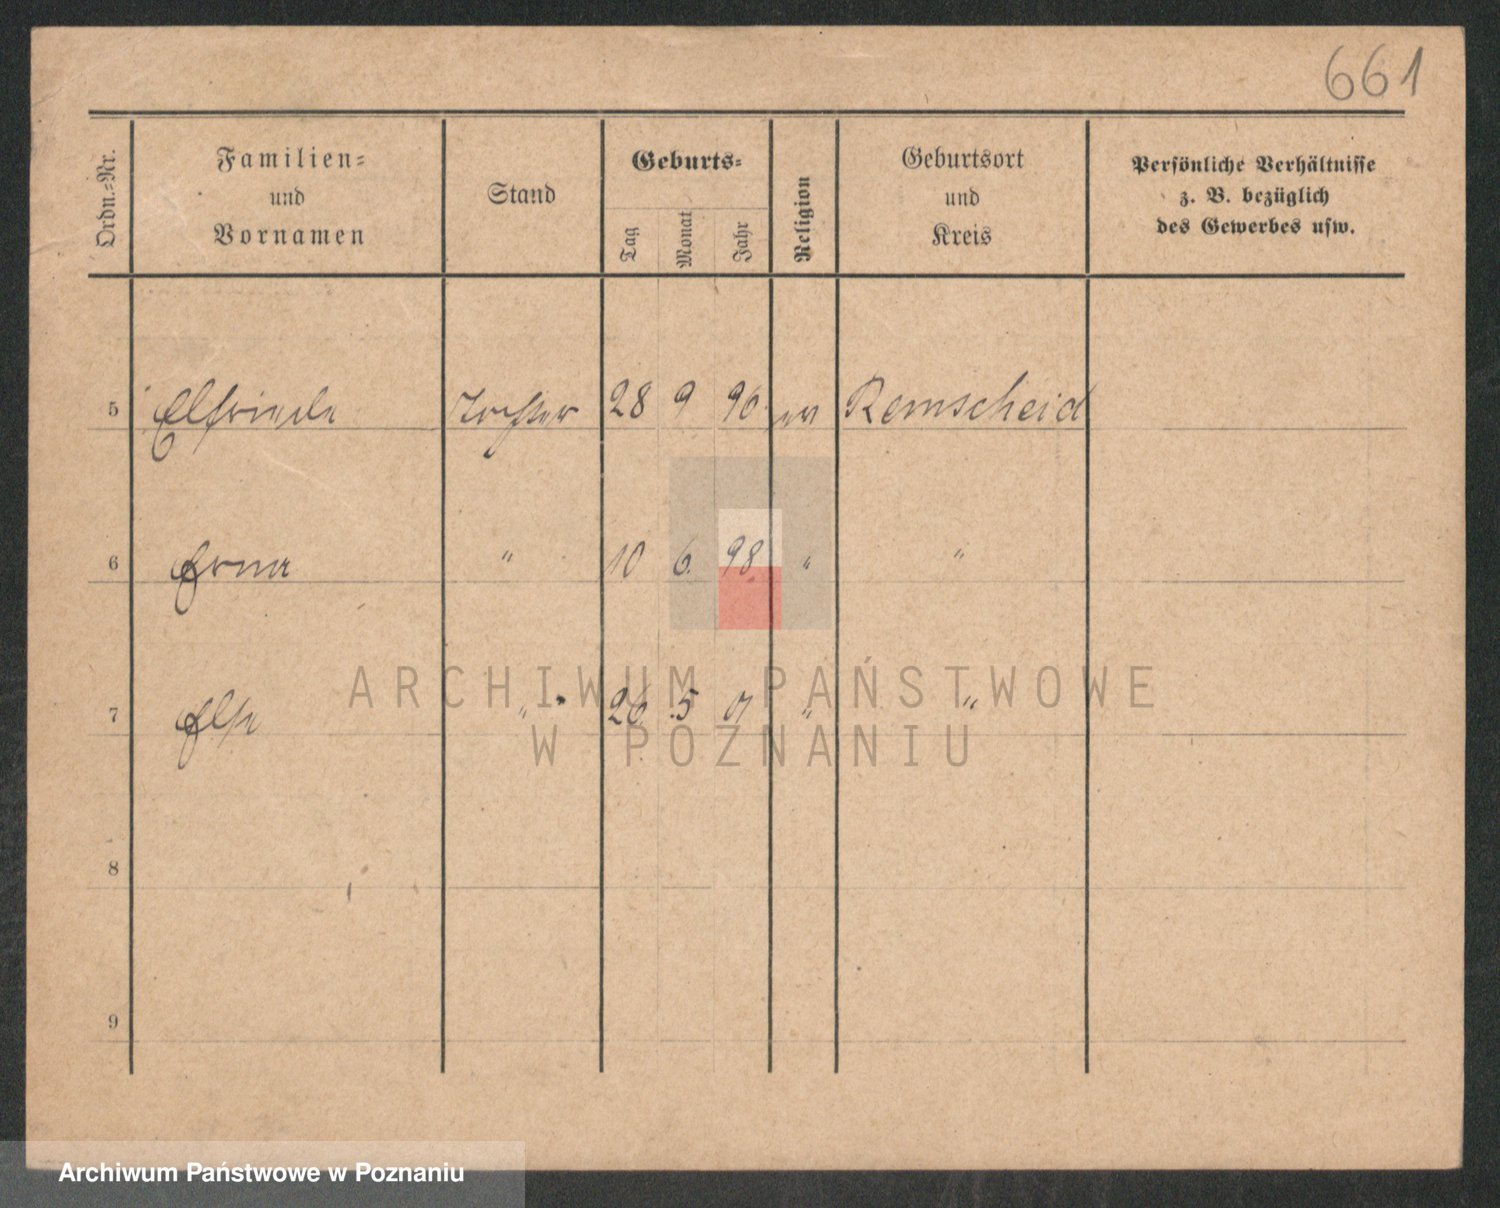 661
Ordn.-Nr.
Familien-
und
Vornamen
Stand
Geburts-
Tag
Monat
Jahr
Religion
Geburtsort
und
Kreis
Persönliche Verhältnisse
z. B. bezüglich
des Gewerbes usw.
5 Elfriede Tochter 28 9 96 ev Remscheid
6 Erna " 10 6. 98 " "
ARCHIWUM PAŃSTWOWE
7 Else " " 26 5 01 " "
W POZNANIU
8
9
Archiwum Państwowe w Poznaniu